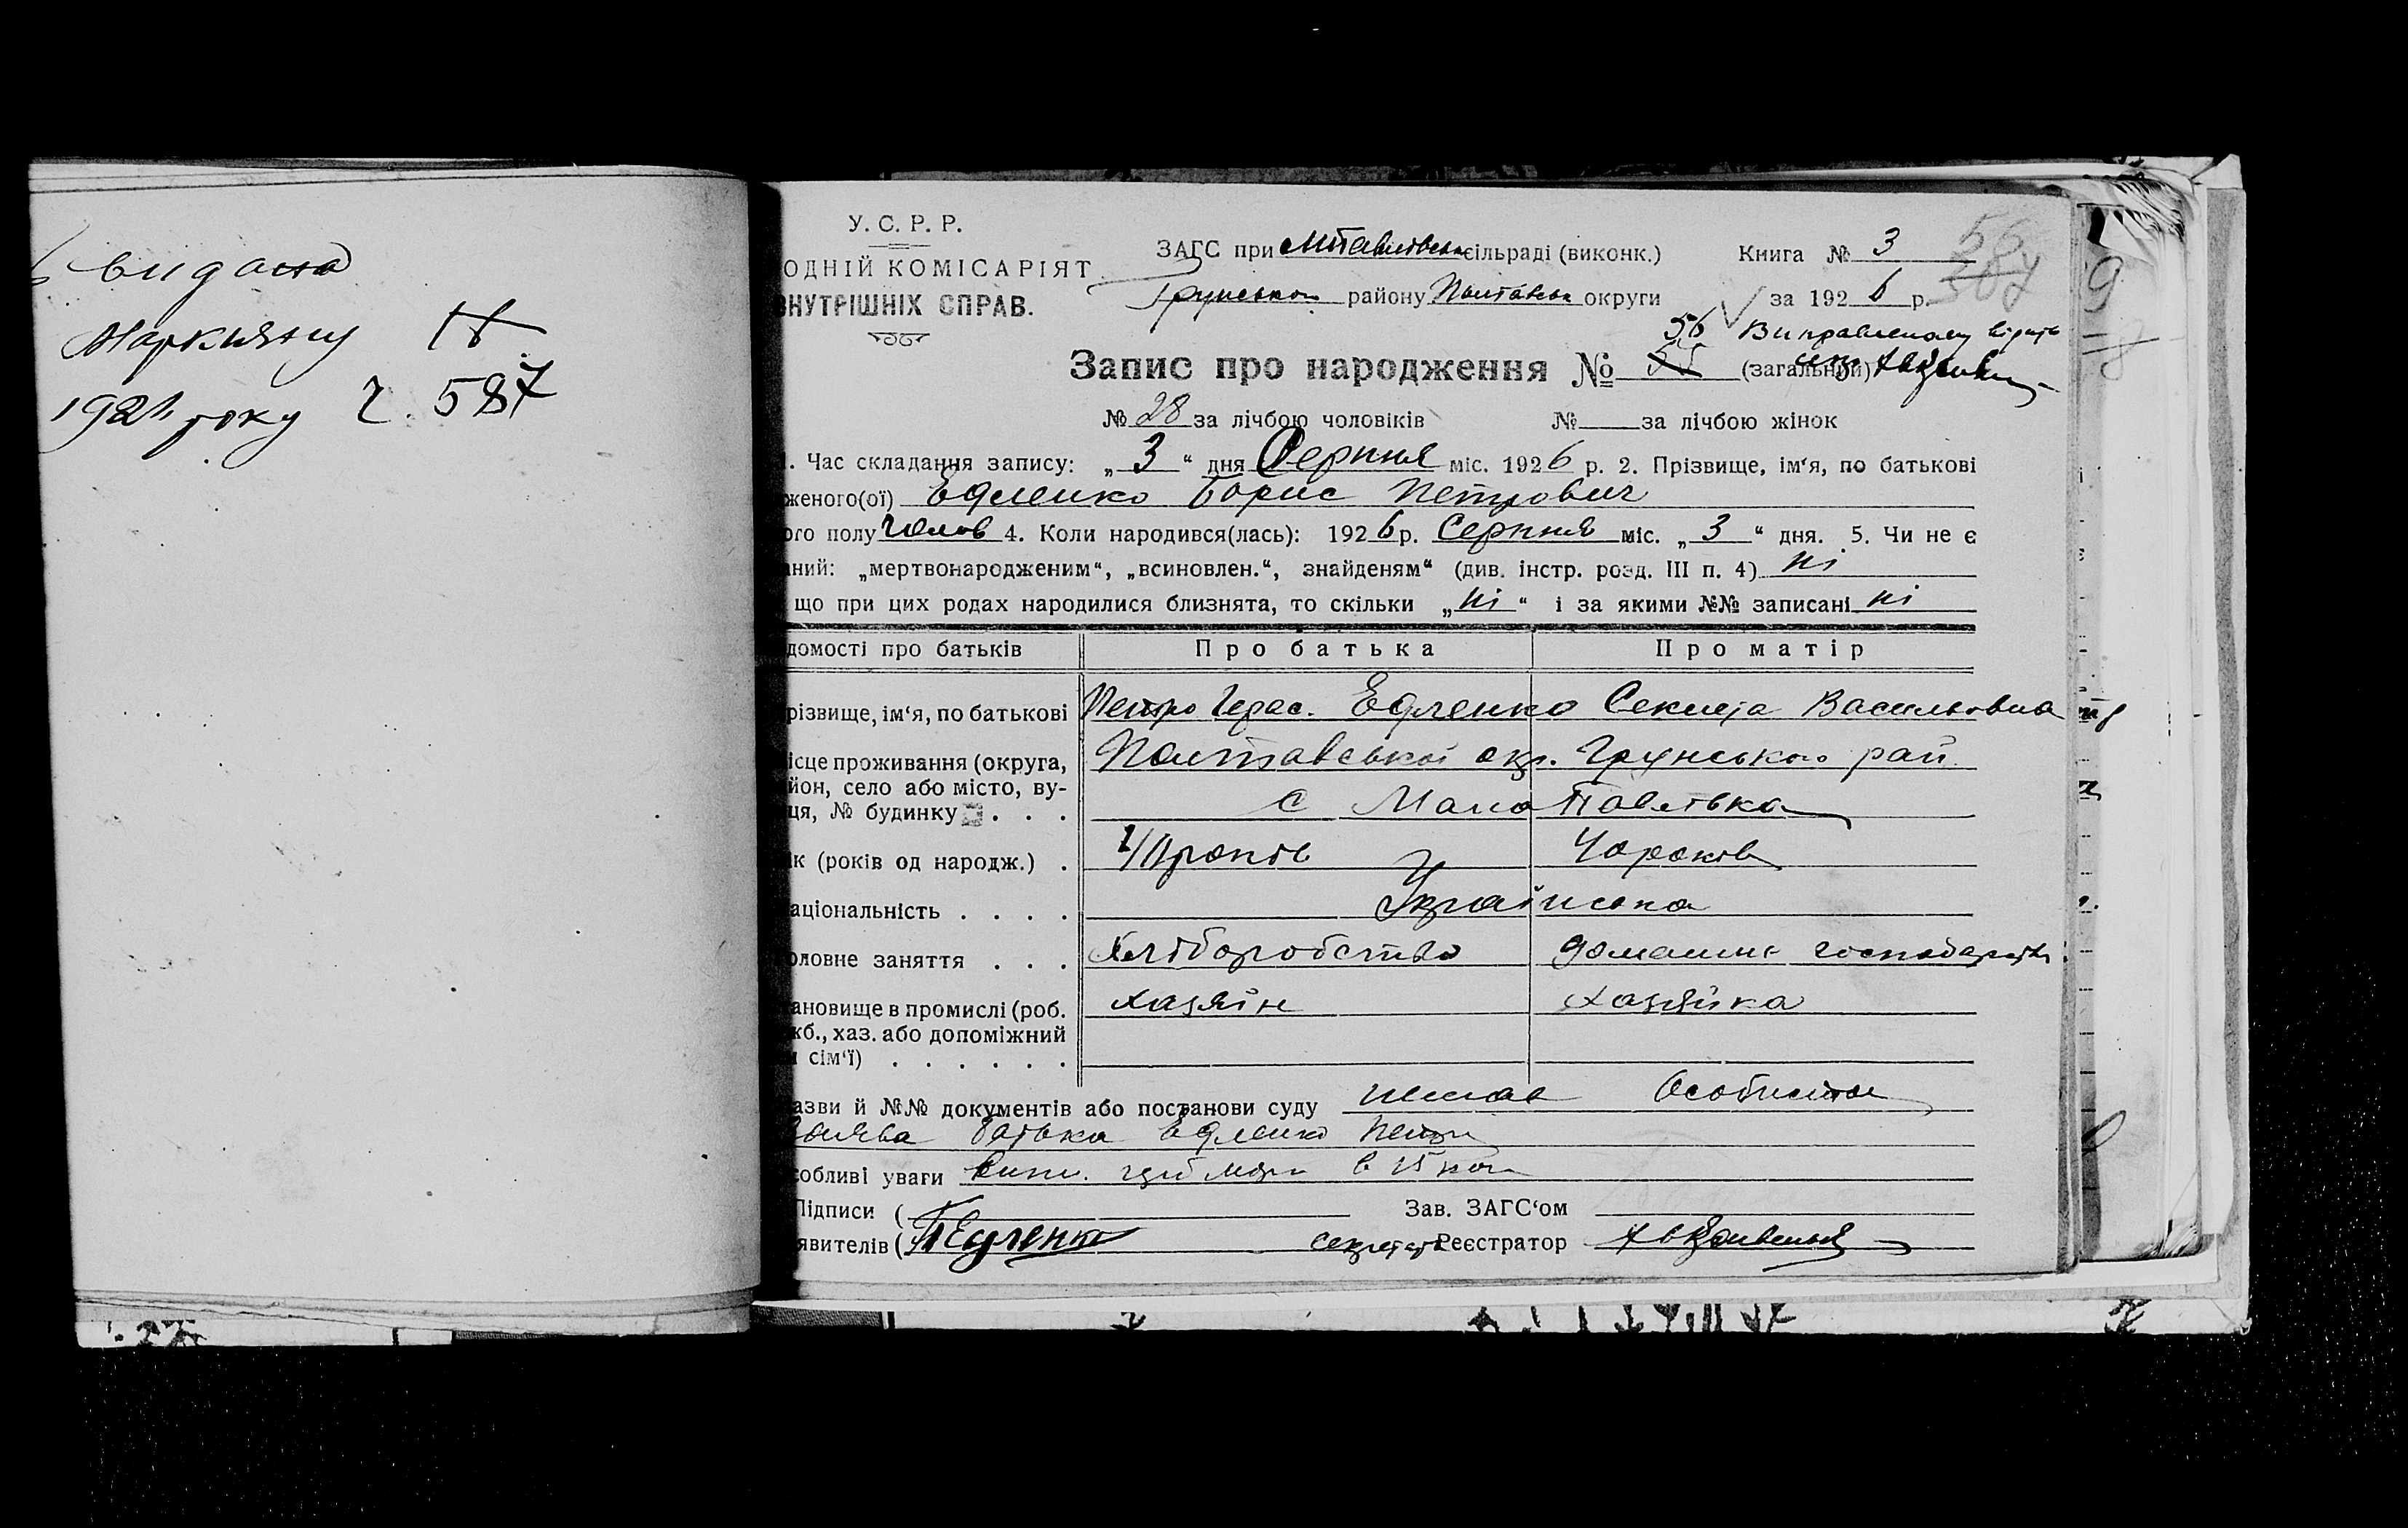 видана
1921 року ч. 587
У. С. Р. Р.
ОДНІЙ КОМІСАРІЯТ
ВНУТРІШНІХ СПРАВ.
ЗАГС при МПавлівськ сільраді (виконк.)
Грунського району Полтавськ округи
Книга № 3
за 1926 р.
56
Виправленому вірить
Запис про народження № 55 (загальний)
№ 28 за лічбою чоловіків № за лічбою жінок
1. Час складання запису: „3“ дня Серпня міс. 1926 р. 2. Прізвище, ім‘я, по батькові
женого(ої) Едленко Борис Петрович
ого полу Чолов 4. Коли народився(лась): 1926 р. Серпня міс. „3“ дня. 5. Чи не є
аний: „мертвонародженим“, „всиновлен.“, знайденям“ (див. інстр. розд. III п. 4) ні
що при цих родах народилися близнята, то скільки „ні“ і за якими №№ записані ні
домості про батьків Про батька Про матір
різвище, ім‘я, по батькові Петро Герас. Едленко Секлета Васильовна
ісце проживання (округа, Полтавської окр. Грунського рай
йон, село або місто, ву-
ця, № будинку . . . с Мало Павлівка
ік (років од народж.) . 40 років 40 років
аціональність . . . . Українська
оловне заняття . . . Хліборобство домашнє господарств
ановище в промислі (роб. хазяїн хазяйка
жб., хаз. або допоміжний
и сім‘ї) . . . . . .
азви й №№ документів або постанови суду немає Особиста
заява батька Едленко Петр
обливі уваги
Підписи ( Зав. ЗАГС‘ом
явителів ( ПЕдленко секретарь Реєстратор